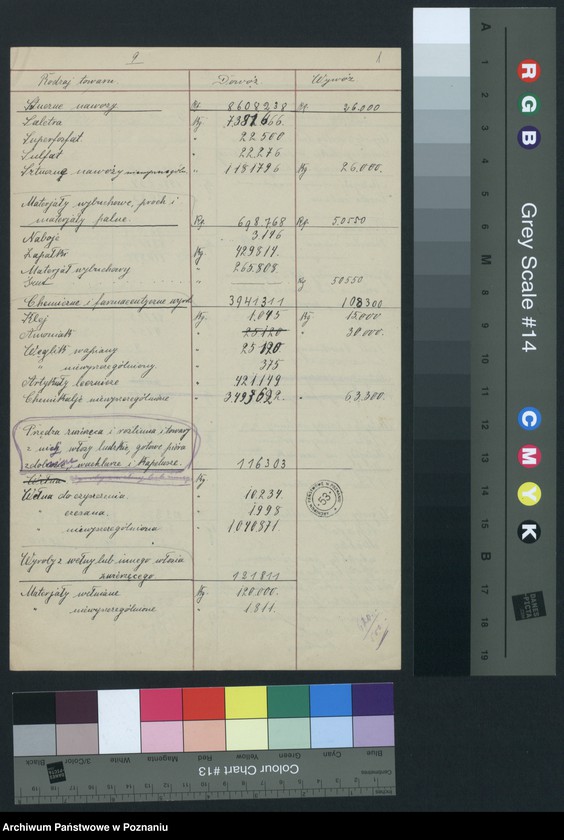 9
Rodzaj towaru. Dowóz. Wywóz
Sztuczne nawozy Kg. 8608238 Kg. 26.000
Saletra Kg. 7381666.
Superfosfat " 22.500
Sulfat " 22.276
Sztuczne nawozy niewyszczególn. " 1181796 Kg 26.000.
Materjały wybuchowe, proch i
materjały palne. Kg. 698.768 Kg. 50550
Naboje " 3146
Zapałki Kg. 429814.
Materjał wybuchowy " 265.808
" Kg 50550
Chemiczne i farmaceutyczne wyrob 3941311 108300
Klej Kg. 1.045 Kg 15.000
Amoniak " 25120 " 30.000.
Węglik wapniowy " 25120
" niewyszczególniony " 375
Artykuły lecznicze " 421149
Chemikalje niewyszczególnione " " 63.300.
Przędza zwierzęca i roślinna i towary
z niej, włosy ludzkie, gotowe pióra
zdobnicze, wachlarze i kapelusze. 116303
Wełna Kg.
Wełna do czyszczenia. " 10234.
" czesana. " 1998
" niewyszczególniona " 1040871
Wyroby z wełny lub innego włosia
zwierzęcego 121811
Materjały wełniane Kg. 120.000.
" niewyszczególnione " 1811.
53
A 1 2 3 4 5 6 M 8 9 10 11 12 13 14 15 B 17 18 19
R
G
B
Grey Scale #14
C
M
Y
K
DANES
PICTA
Colour Chart #13
Blue Cyan Green Yellow Red Magenta White 3/Color Black
Centimetres
Inches
Archiwum Państwowe w Poznaniu